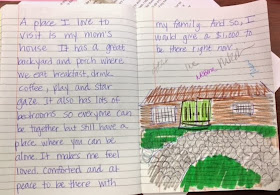 A place I love to
visit is my mom's
house. It has a great
backyard and porch where
we eat breakfast, drink
coffee, play and star
gaze. It also has lots of
bedrooms so everyone can
be together but still have a
place where you can be
alone. It makes me feel
loved, comforted and at
peace to be there with
my family. And so, I
would give a $1,000 to
be there right now.